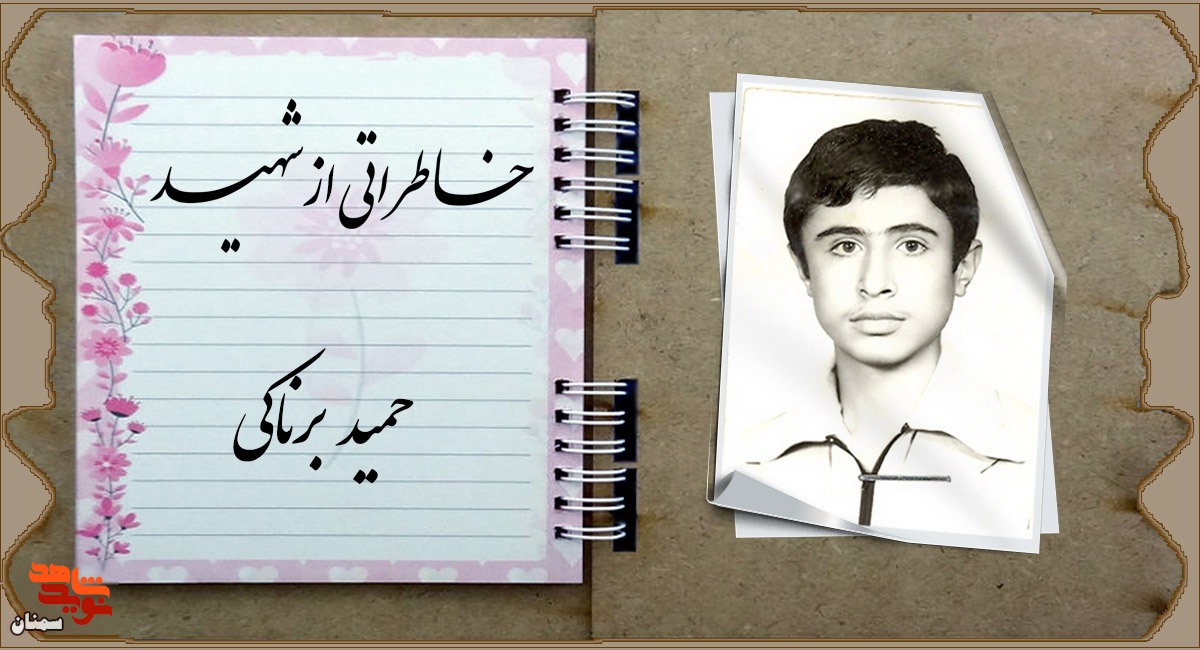 خاطراتی از شهید
حمید برناکی
نوید شاهد
سمنان